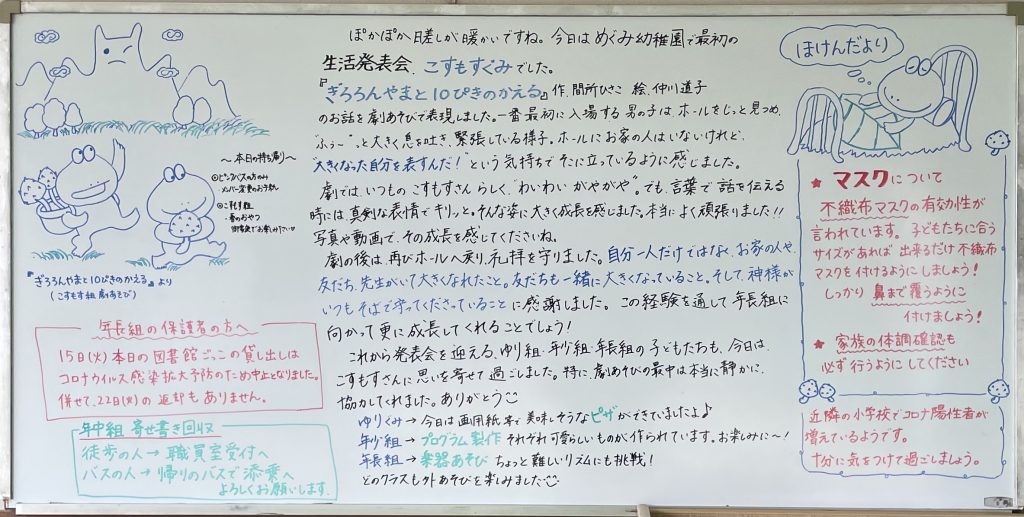 ぽかぽか日差しが暖かいですね。今日はめぐみ幼稚園で最初の
生活発表会、こすもすぐみでした。
『ぎろろんやまと10ぴきのかえる』作.間所ひさこ 絵.仲川道子
のお話を劇あそびで表現しました。一番最初に入場する男の子は、ホールをじっと見つめ、
ふぅ〜"っと大きく息を吐き、緊張している様子。ホールにお家の人はいないけれど、
"大きくなった自分を表すんだ！"という気持ちでそこに立っているように感じました。
劇では、いつものこすもすさんらしく、"わいわいがやがや"。でも、言葉で話を伝える
時には、真剣な表情でキリッと。そんな姿に大きく成長を感じました。本当によく頑張りました!!
写真や動画で、その成長を感じてくださいね。
劇の後は、再びホールへ戻り、礼拝を守りました。自分一人だけではなく、お家の人や、
友だち、先生がいて大きくなれたこと。友だちも一緒に大きくなっていること。そして、神様が
いつもそばで守ってくださっていることに感謝しました。この経験を通して年長組に
向かって更に成長してくれることでしょう！
これから発表会を迎える、ゆり組・年少組・年長組の子どもたちも、今日は、
こすもすさんに思いを寄せて過ごしました。特に、劇あそびの最中は本当に静かに、
協力してくれました。ありがとう
ゆりくみ→今日は画用紙で美味しそうなピザができていましたよ♪
年少組→プログラム製作 それぞれ可愛らしいものが作られています。お楽しみに〜！
年長組→楽器あそび ちょっと難しいリズムにも挑戦！
どのクラスも外あそびを楽しみました
〜本日の持ち帰り〜
『ぎろろんやまと10ぴきのかえる』より
(こすもす組 劇あそび)
年長組の保護者の方へ
15日(火)本日の図書館ごっこの貸し出しは
コロナウイルス感染拡大予防のため中止となりました。
併せて、22日(火)の返却もありません。
年中組 寄せ書き回収
徒歩の人→職員室受付へ
バスの人→帰りのバスで添乗へ
よろしくお願いします.
ほけんだより
★ マスクについて
不織布マスクの有効性が
言われています。子どもたちに合う
サイズがあれば 出来るだけ不織布
マスクを付けるようにしましょう！
しっかり 鼻まで覆うように
付けましょう！
★ 家族の体調確認も
必ず行うようにしてください
近隣の小学校でコロナ陽性者が
増えているようです。
十分に気をつけて過ごしましょう。